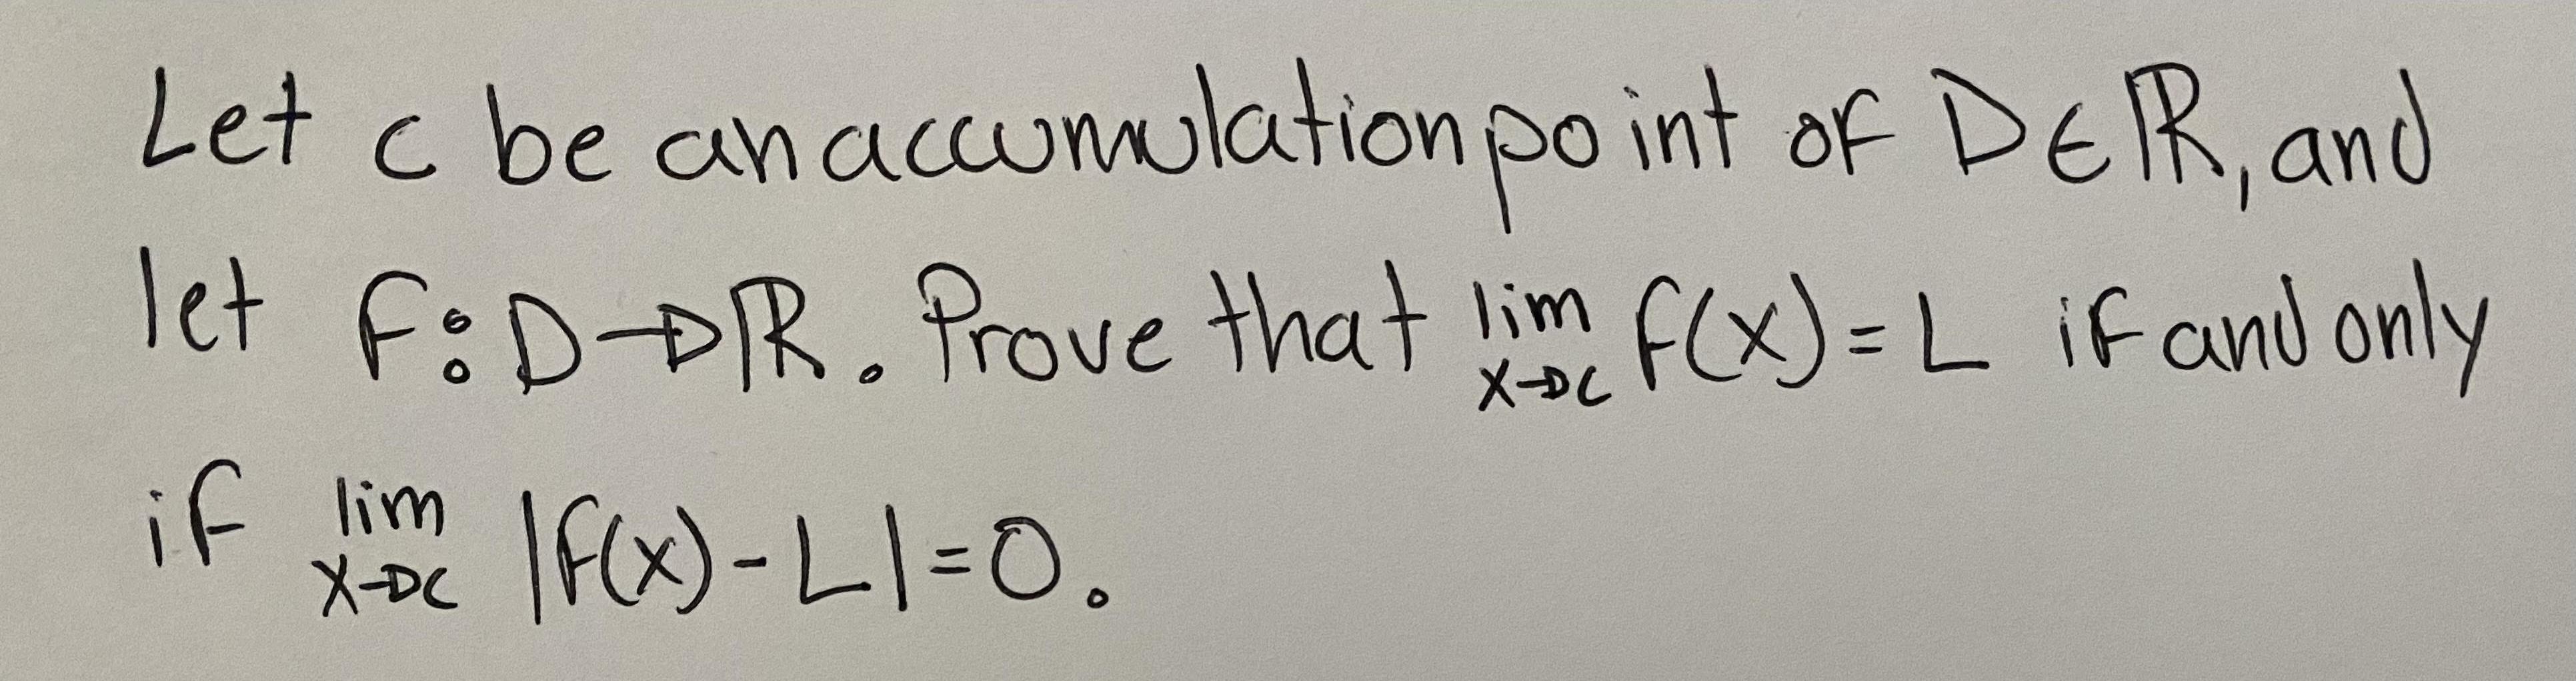 Let c be an accumulation point of D∈ℝ, and
let f: D→ℝ. Prove that lim_{x→c} f(x) = L if and only
if lim_{x→c} |f(x) - L| = 0.